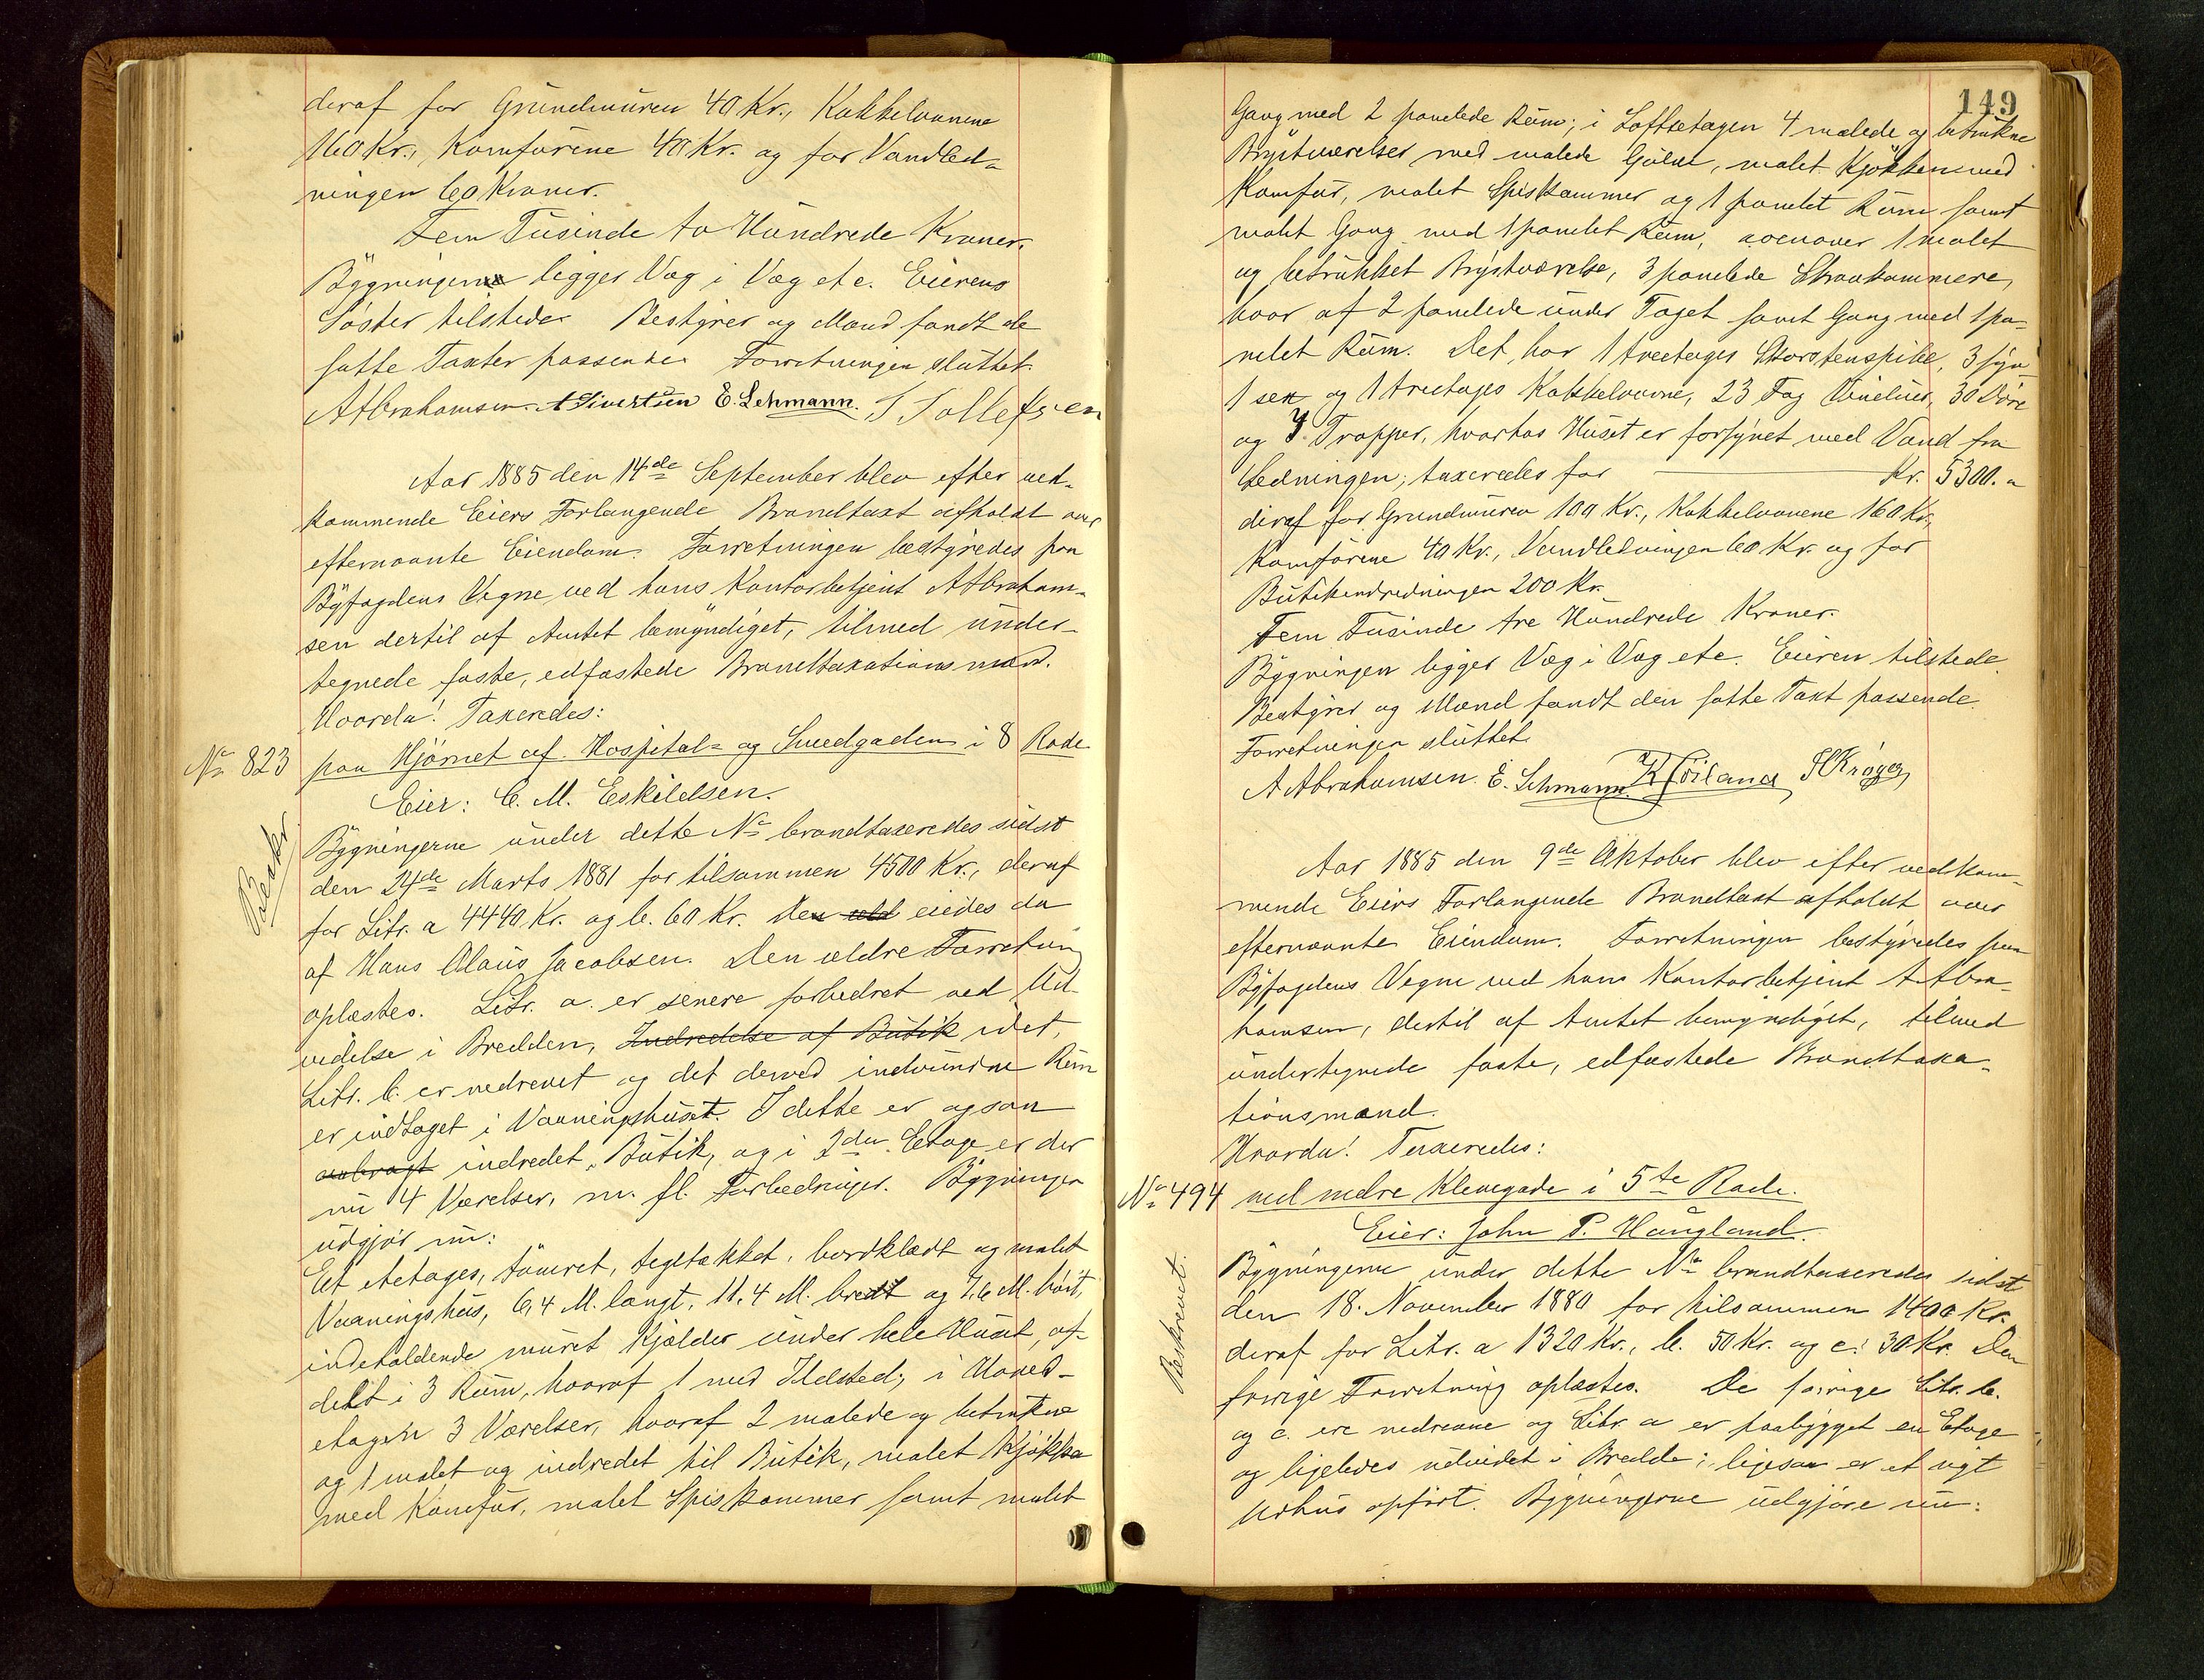 deraf for Grundmuren 40 Kr., Kakkelovnene
160 Kr., Komfurene 40 Kr. og for Vandled-
ningen 60 Kroner.
Fem Tusinde to Hundrede Kroner.
Bygningen ligger Væg i Væg etc. Eierens
Søster tilstede. Bestyrer og Mænd fandt de
satte Taxter passende. Forretningen sluttet.
A Abrahamsen. A Sivertsen E. Lehmann. T Tollefsen
Aar 1885 den 14de September blev efter ved-
kommende Eiers Forlangende Brandtaxt afholdt over
efternævnte Eiendom. Forretningen bestyredes paa
Byfogdens Vegne ved hans Kontorbetjent A Abraham-
sen dertil af Amtet bemyndiget, tilmed under-
tegnede faste, edfæstede Brandtaxationsmænd.
Hvorda! Taxeredes:
No 823 paa Hjørnet af Hospital- og Smedgaden i 8 Rode
Eier: C. M. Eskildsen.
Beskr.
Bygningerne under dette No brandtaxeredes sidst
den 24de Marts 1881 for tilsammen 4500 Kr., deraf
for Litr. a 4440 Kr. og b. 60 Kr. Den æld eiedes da
af Hans Olaus Jacobsen. Den ældre Forretning
oplæstes. Litr. a. er senere forbedret ved Ud-
videlse i Bredden, Indredelse af Butik idet,
Litr. b. er nedrevet og det derved indvundne Rum
er indtaget i Vaaningshuset. I dette er ogsaa
anbragt indredet Butik, og i 2den Etage er der
nu 4 Værelser, m. fl. Forbedringer. Bygningen
udgjør nu:
Et etetages, tømret, tegltækket, bordklædt og malet
Vaaningshus, 6,4 M. langt, 11,4 M. bredt og 7,6 M. høit,
indeholdende muret Kjælder under hele Huset, af-
delt i 3 Rum, hvoraf 1 med Ildsted; i Hoved-
etagen 3 Værelser, hvoraf 2 malede og betrukne
og 1 malet og indredet til Butik, malet Kjøkken
med Komfur, malet Spiskammer samt malet
149
Gang med 2 panelede Rum; i Loftsetagen 4 malede og betrukne
Brystværelser med malede Gulve, malet Kjøkken med
Komfur, malet Spiskammer og 1 panelet Rum samt
malet Gang med 1 panelet Rum, ovenover 1 malet
og betrukket Brystværelse, 3 panelede Skraakammere,
hvor af 2 panelede under Taget samt Gang med 1 pa-
nelet Rum. Det har 1 treetages Skorstenspibe, 3 fyr
1 sex og 1 treetages Kakkelovne, 23 Fag Vinduer, 30 Døre
og Trapper, hvorhos Huset er forsynet med Vand fra
Ledningen; taxeredes for Kr. 5300.
deraf for Grundmuren 100 Kr., Kakkelovnene 160 Kr.,
Komfurene 40 Kr., Vandledningen 60 Kr. og for
Butikindredningen 200 Kr.
Fem Tusinde tre Hundrede Kroner.
Bygningen ligger Væg i Væg etc. Eieren tilstede.
Bestyrer og Mænd fandt den satte Taxt passende
Forretningen sluttet.
A Abrahamsen. E. Lehmann. Høiland Krøger
Aar 1885 den 9de Oktober blev efter vedkom-
mende Eiers Forlangende Brandtaxt afholdt over
efternævnte Eiendom. Forretningen bestyredes paa
Byfogdens Vegne ved hans Kontorbetjent A Abra-
hamsen, dertil af Amtet bemyndiget, tilmed
undertegnede faste, edfæstede Brandtaxa-
tionsmænd.
Hvorda! Taxeredes:
No 494 ved nedre Klevegade i 5te Rode.
Eier: John P. Haugland.
Beskrevet.
Bygningerne under dette No brandtaxeredes sidst
den 18. November 1880 for tilsammen 1400 Kr.
deraf for Litr. a 1320 Kr., b. 50 Kr. og c: 30 Kr. Den
forrige Forretning oplæstes. De forrige Litr. b.
og c. ere nedrevne og Litr. a er paabygget en Etage
og ligeledes udvidet i Bredde; ligesom er et nyt
Udhus opført. Bygningerne udgjøre nu: